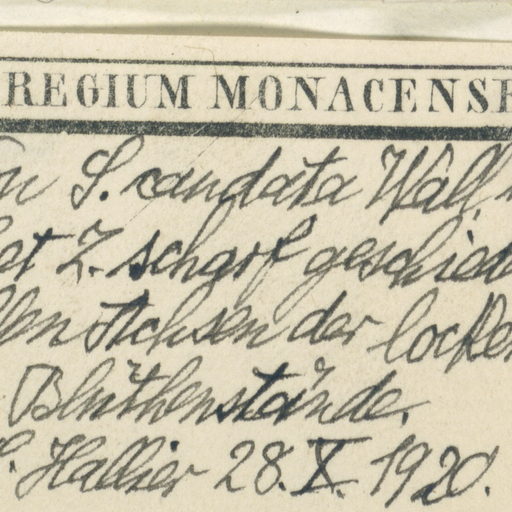 REGIUM MONACENSE
S. caudata Wall.
et Z. scharf geschied
len Achsen der locker
Blüthenstände.
Hallier 28. X. 1920.